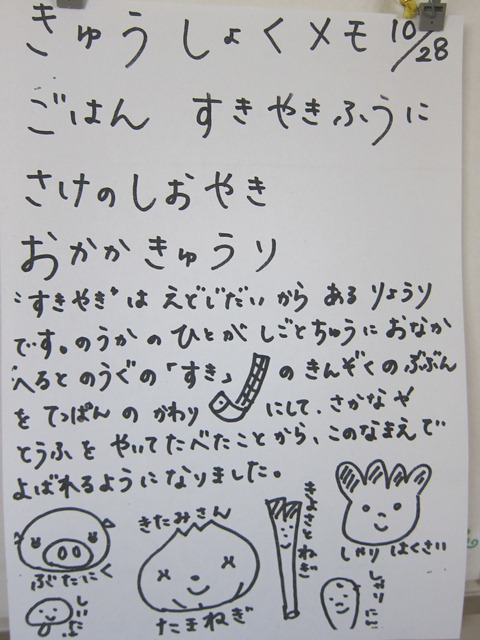 きゅうしょくメモ 10/28
ごはん すきやきふうに
さけのしおやき
おかかきゅうり
"すきやき"は えどじだいから ある りょうり
です。のうかの ひとが しごとちゅうに おなか
へると のうぐの「すき」 の きんぞくの ぶぶん
を てっぱんの かわり にして、さかなや
とうふを やいてたべたことから、このなまえで
よばれるようになりました。
ぶたにく
しいたけ
きたみさん
たまねぎ
きよさとねぎ
しゃり はくさい
しゃり